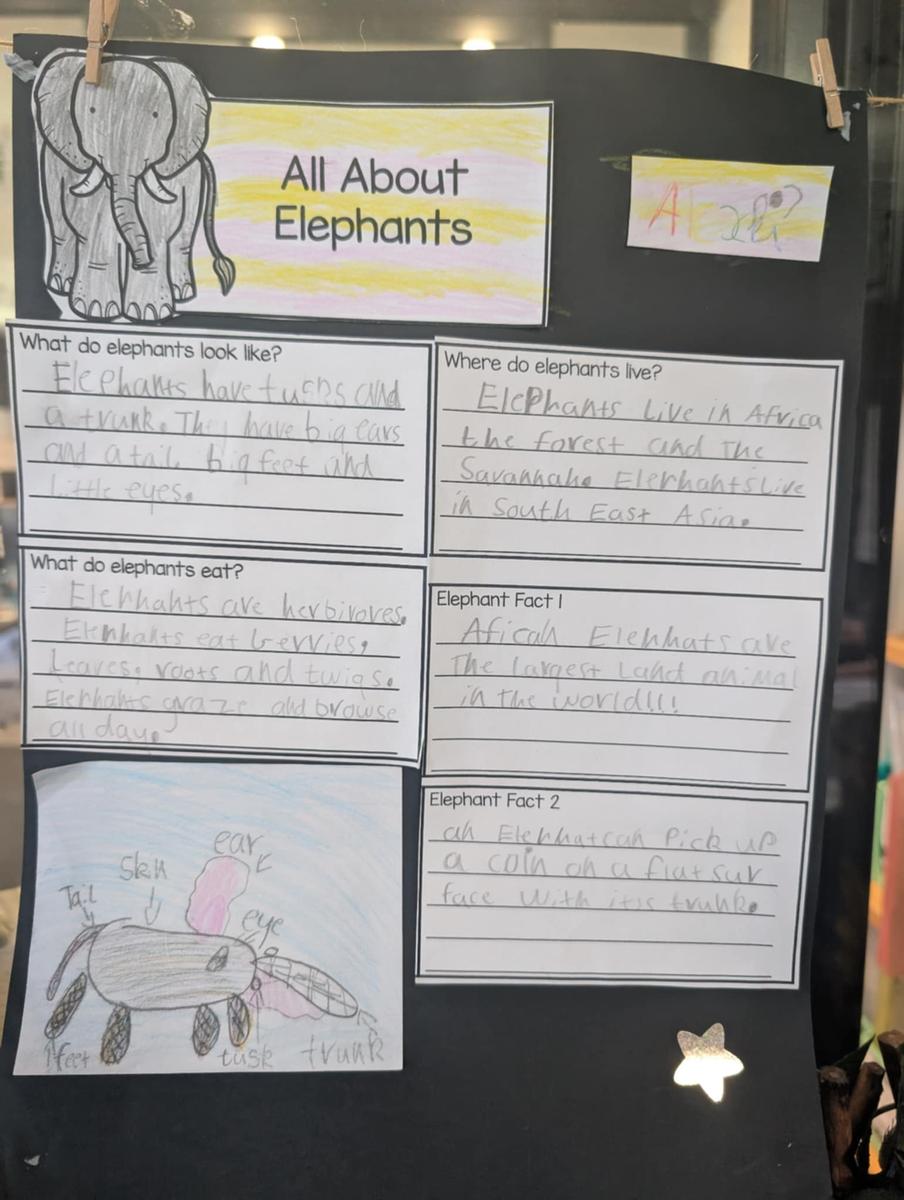 All About
Elephants
What do elephants look like?
Elephants have tusks and
a trunk. They have big ears
and a tail big feet and
little eyes.
Where do elephants live?
Elephants Live in Africa
the forest and The
Savannah. ElephantsLive
in South East Asia.
What do elephants eat?
Elephahts are herbivoves.
Elephahts eat berries,
Leaves, roots and twigs.
Elephahts graze and browse
all day.
Elephant Fact 1
Aficah Elephats are
The largest Land animal
in the world!!!
Elephant Fact 2
ah Elephat cah Pick up
a coin oh a flat sur
face with itis trunk.
ear
Skn
Tail
eye
feet
tusk
trunk